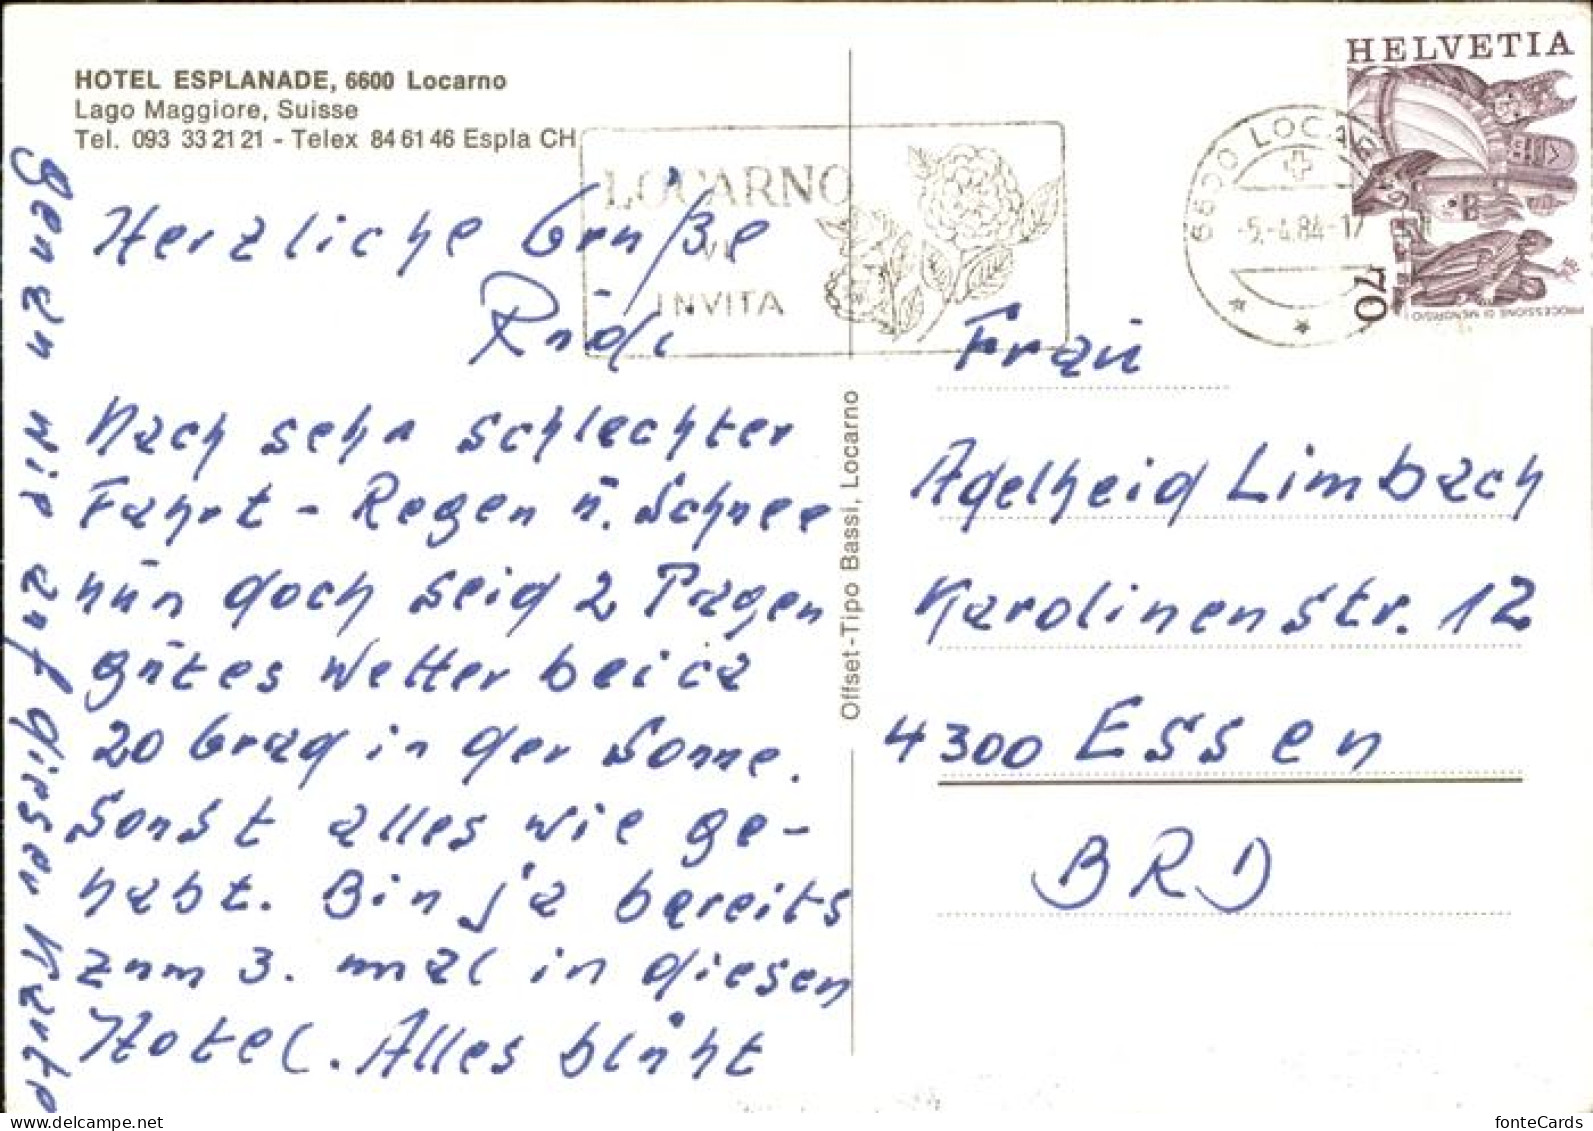 HOTEL ESPLANADE, 6600 Locarno
Lago Maggiore, Suisse
Tel. 093 33 21 21 - Telex 84 61 46 Espla CH
LOCARNO
VI
INVITA
6600 LOCARNO
-5.-4.84-17
HELVETIA
70
PROCESSIONE DI MENDRISIO
Herzliche Grüße
Rudi
Nach sehr schlechter
Fahrt - Regen u. Schnee
nun doch seid 2 Tagen
gutes Wetter bei ca
20 Grad in der Sonne.
Sonst alles wie ge-
habt. Bin ja bereits
zum 3. mal in diesen
Hotel. Alles blüht
auf dieser
Offset-Tipo Bassi, Locarno
Frau
Adelheid Limbach
Karolinenstr. 12
4300 Essen
BRD
fonteCards